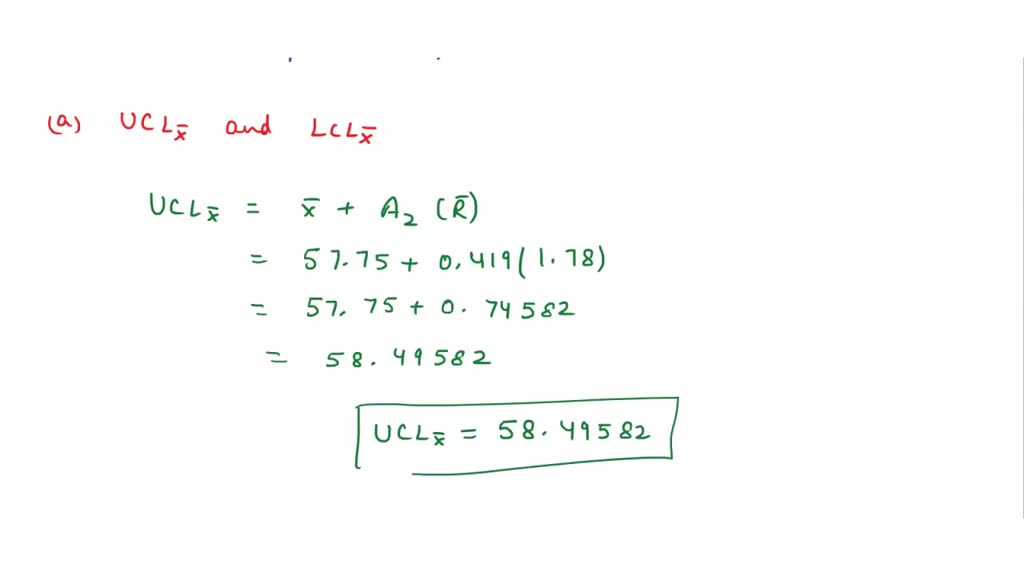 (a) UCLx̄ and LCLx̄
UCLx̄ = x̄ + A₂ (R̄)
= 57.75 + 0.419(1.78)
= 57.75 + 0.74582
= 58.49582
UCLx̄ = 58.49582